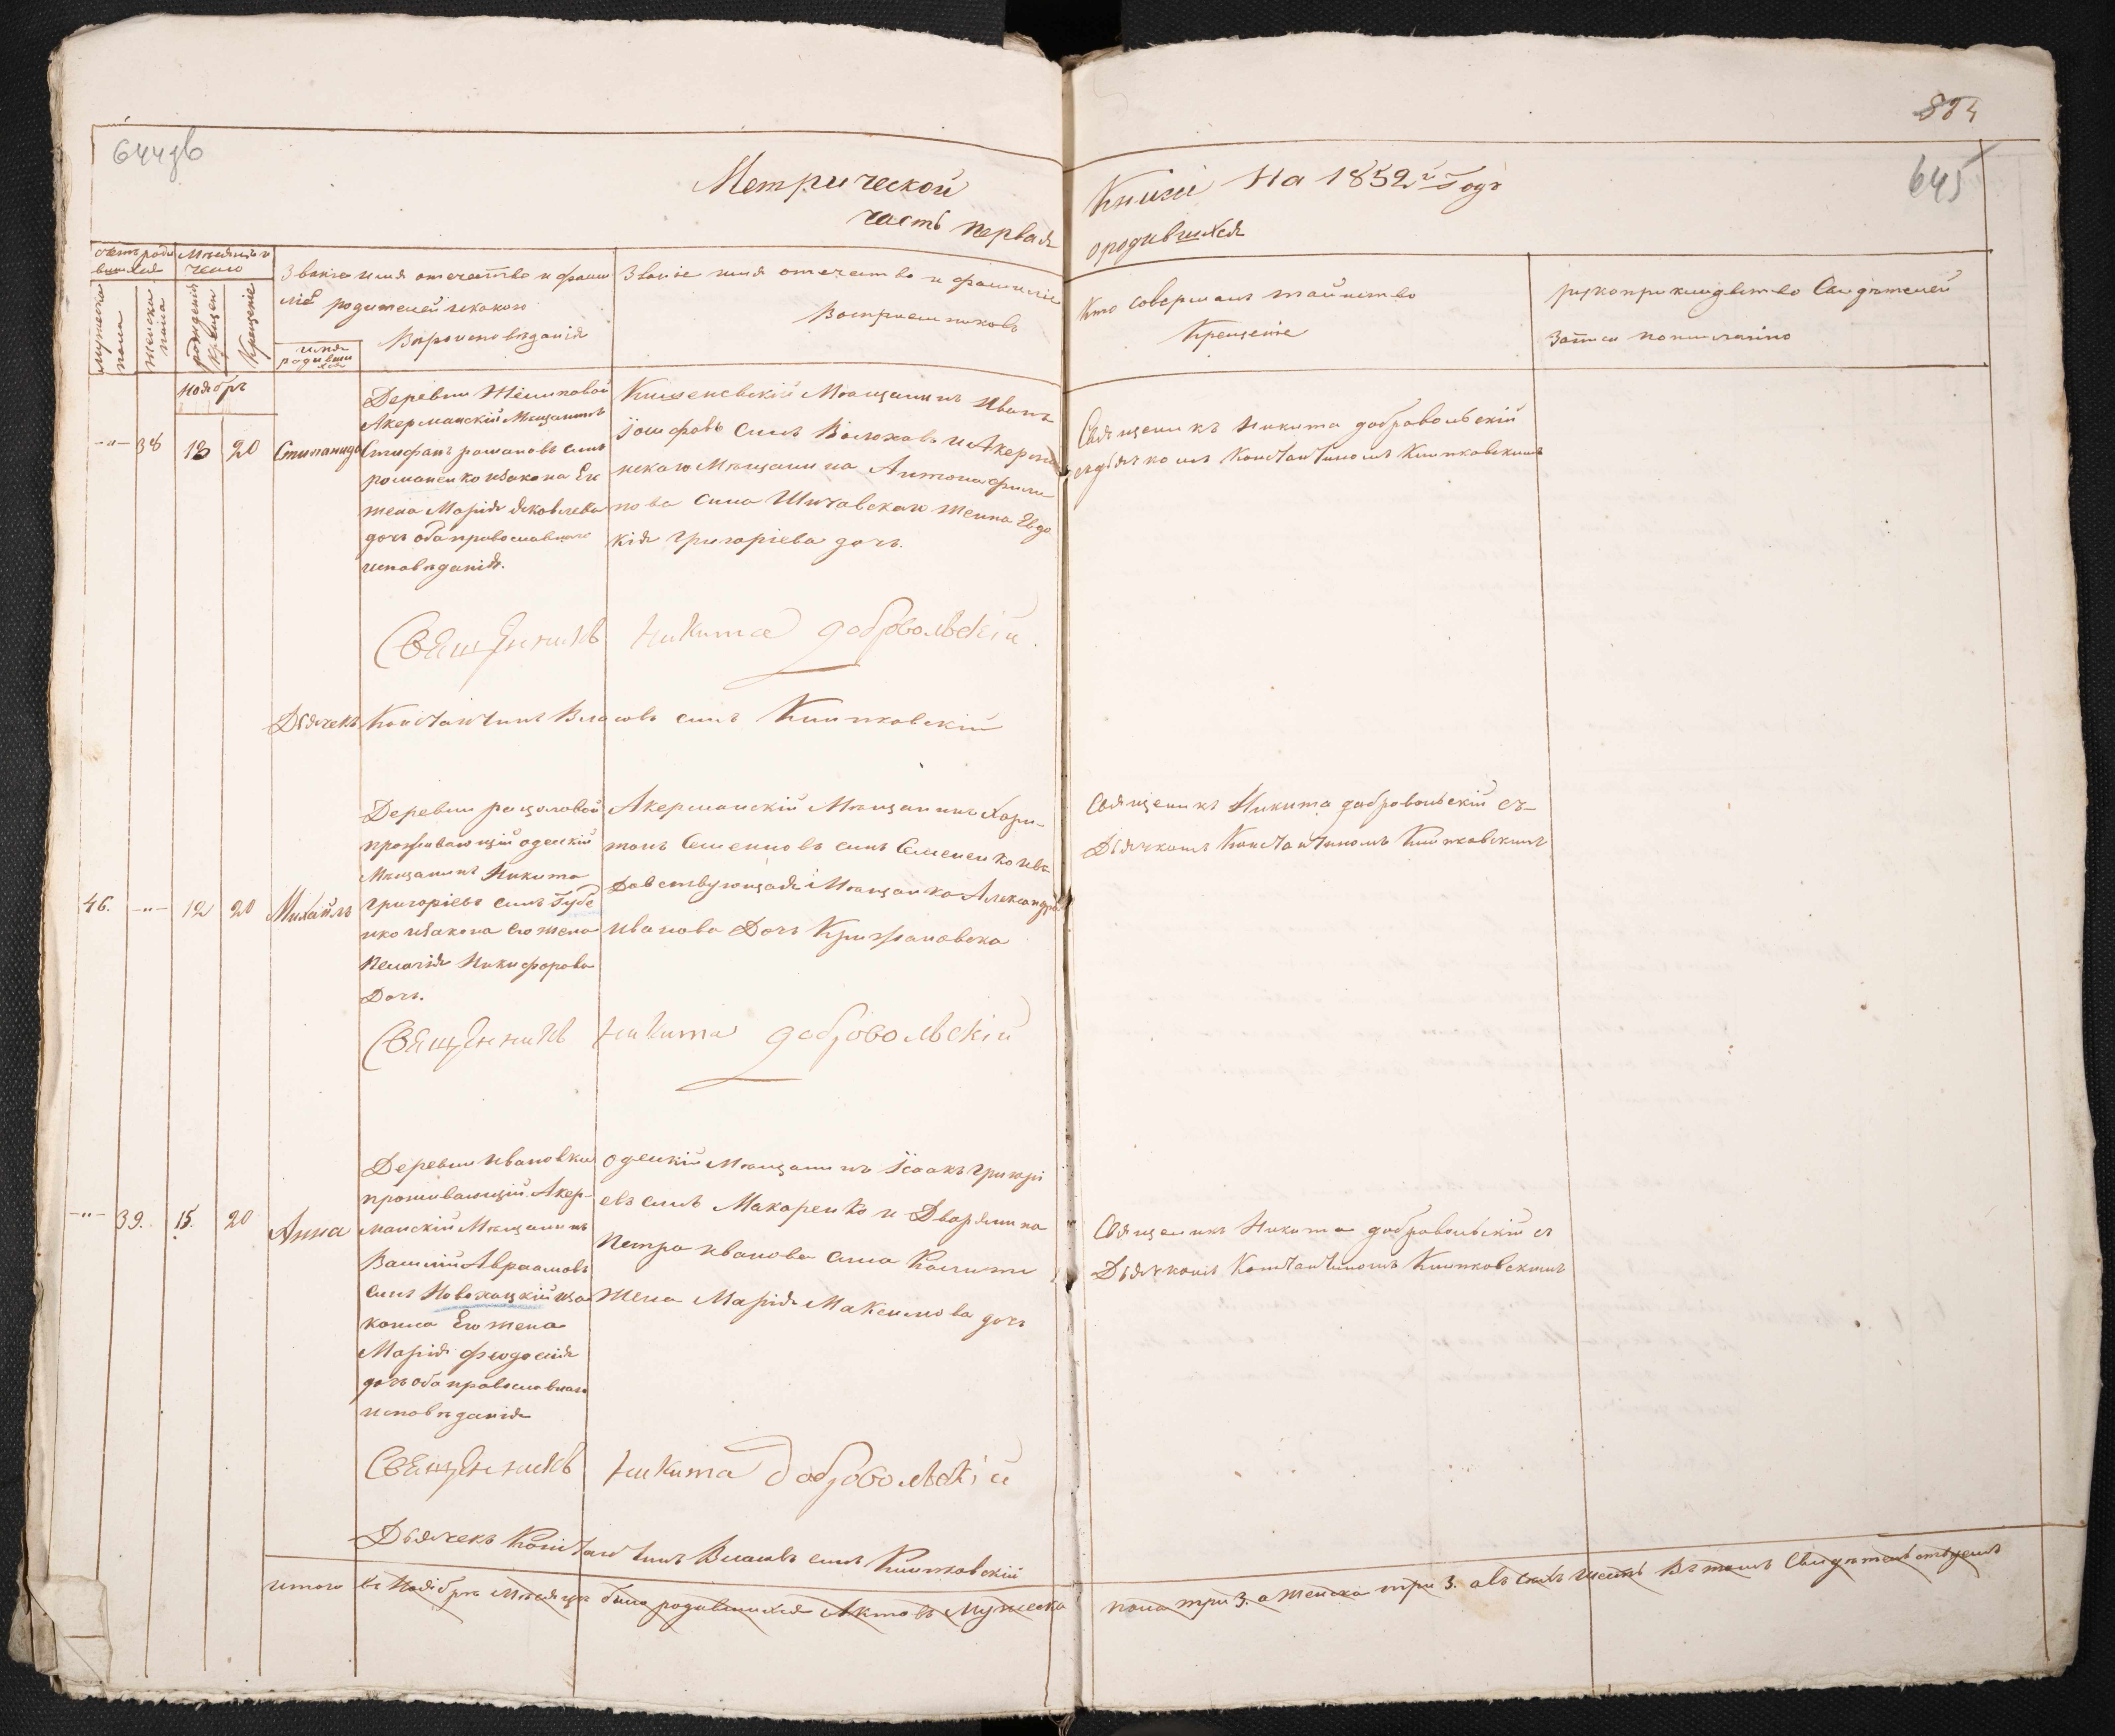 644зв
884
645
Метрической
Книги На 1852й Годъ
часть первая
ородившихся
Счетъ роди
вшихся
Мѣсяцъ и
число
мужеска
пола
женска
пола
рожденія
Крещеніе
Званіе имя отечество и фами
ліѣ родителей икакого
Вѣроисповѣданія
имя
родивши
хся
Званіе имя отечество и фамиліе
Воспріемниковъ
Кто совершалъ таинство
Крещеніе
рукоприкладство Свидѣтелей
записи пожеланію
ноябрь
-"- 38 13 20 Стипанида
Деревни
Акерманскій Мѣщанинъ
Стефанъ романовъ синъ
романенко изакона Ег
жена Марія яковлева
дочь оба православнаго
исповѣданія.
Кишеневскій Мѣщанинъ Иванъ
Іосифовъ Синъ Волоховъ и Акерма
нскаго Мѣщанина Антона фили
пова Сина Шитавскаго жена Евдо
кія григоріева дочь.
Священикъ Никита добровольскій
сдьячкомъ Константиномъ Книтковскимъ
Священникъ Никита добровольскій.
Дьячекъ Константинъ Власовъ синъ Книтковскій
46. -"- 12 20 Михаилъ
Деревни рацуловой
проживающій одескій
Мѣщанинъ Никита
григоріевъ синъ Губе
нко изакона его жена
Пелагія Никифорова
Дочь.
Акерманскій Мѣщанинъ Хари-
тонъ Семеновъ синъ Семененко ивъ
Довствующая Мѣщанка Александра
иванова Дочь Крижановска
Священикъ Никита добровольскій съ
Дьячкомъ Константиномъ Книтковскимъ
Священникъ Никита добровольскій
-"- 39. 15. 20 Анна
Деревни ивановки
проживающій Акер-
манскій Мѣщанинъ
Василій Авраамовъ
синъ Новохацкій иза
конна Его жена
Марія феодосія
дочь оба православнаго
исповѣданія
одескій Мѣщанинъ Ісаакъ григорі
евъ синъ Макаренко и Дворянина
Петра иванова сина
жена Марія Максимова дочь
Священикъ Никита добровольскій съ
Дьячкомъ Константиномъ Книтковскимъ
Священникъ Никита добровольскій
Дьячекъ Константинъ Власовъ синъ Книтковскій
итого въ Ноябрѣ Мѣсяцѣ было родившихся Актовъ Мужеска
пола три 3. а Женска три 3. авъ сихъ шесть Въ томъ Свидѣтельствуемъ